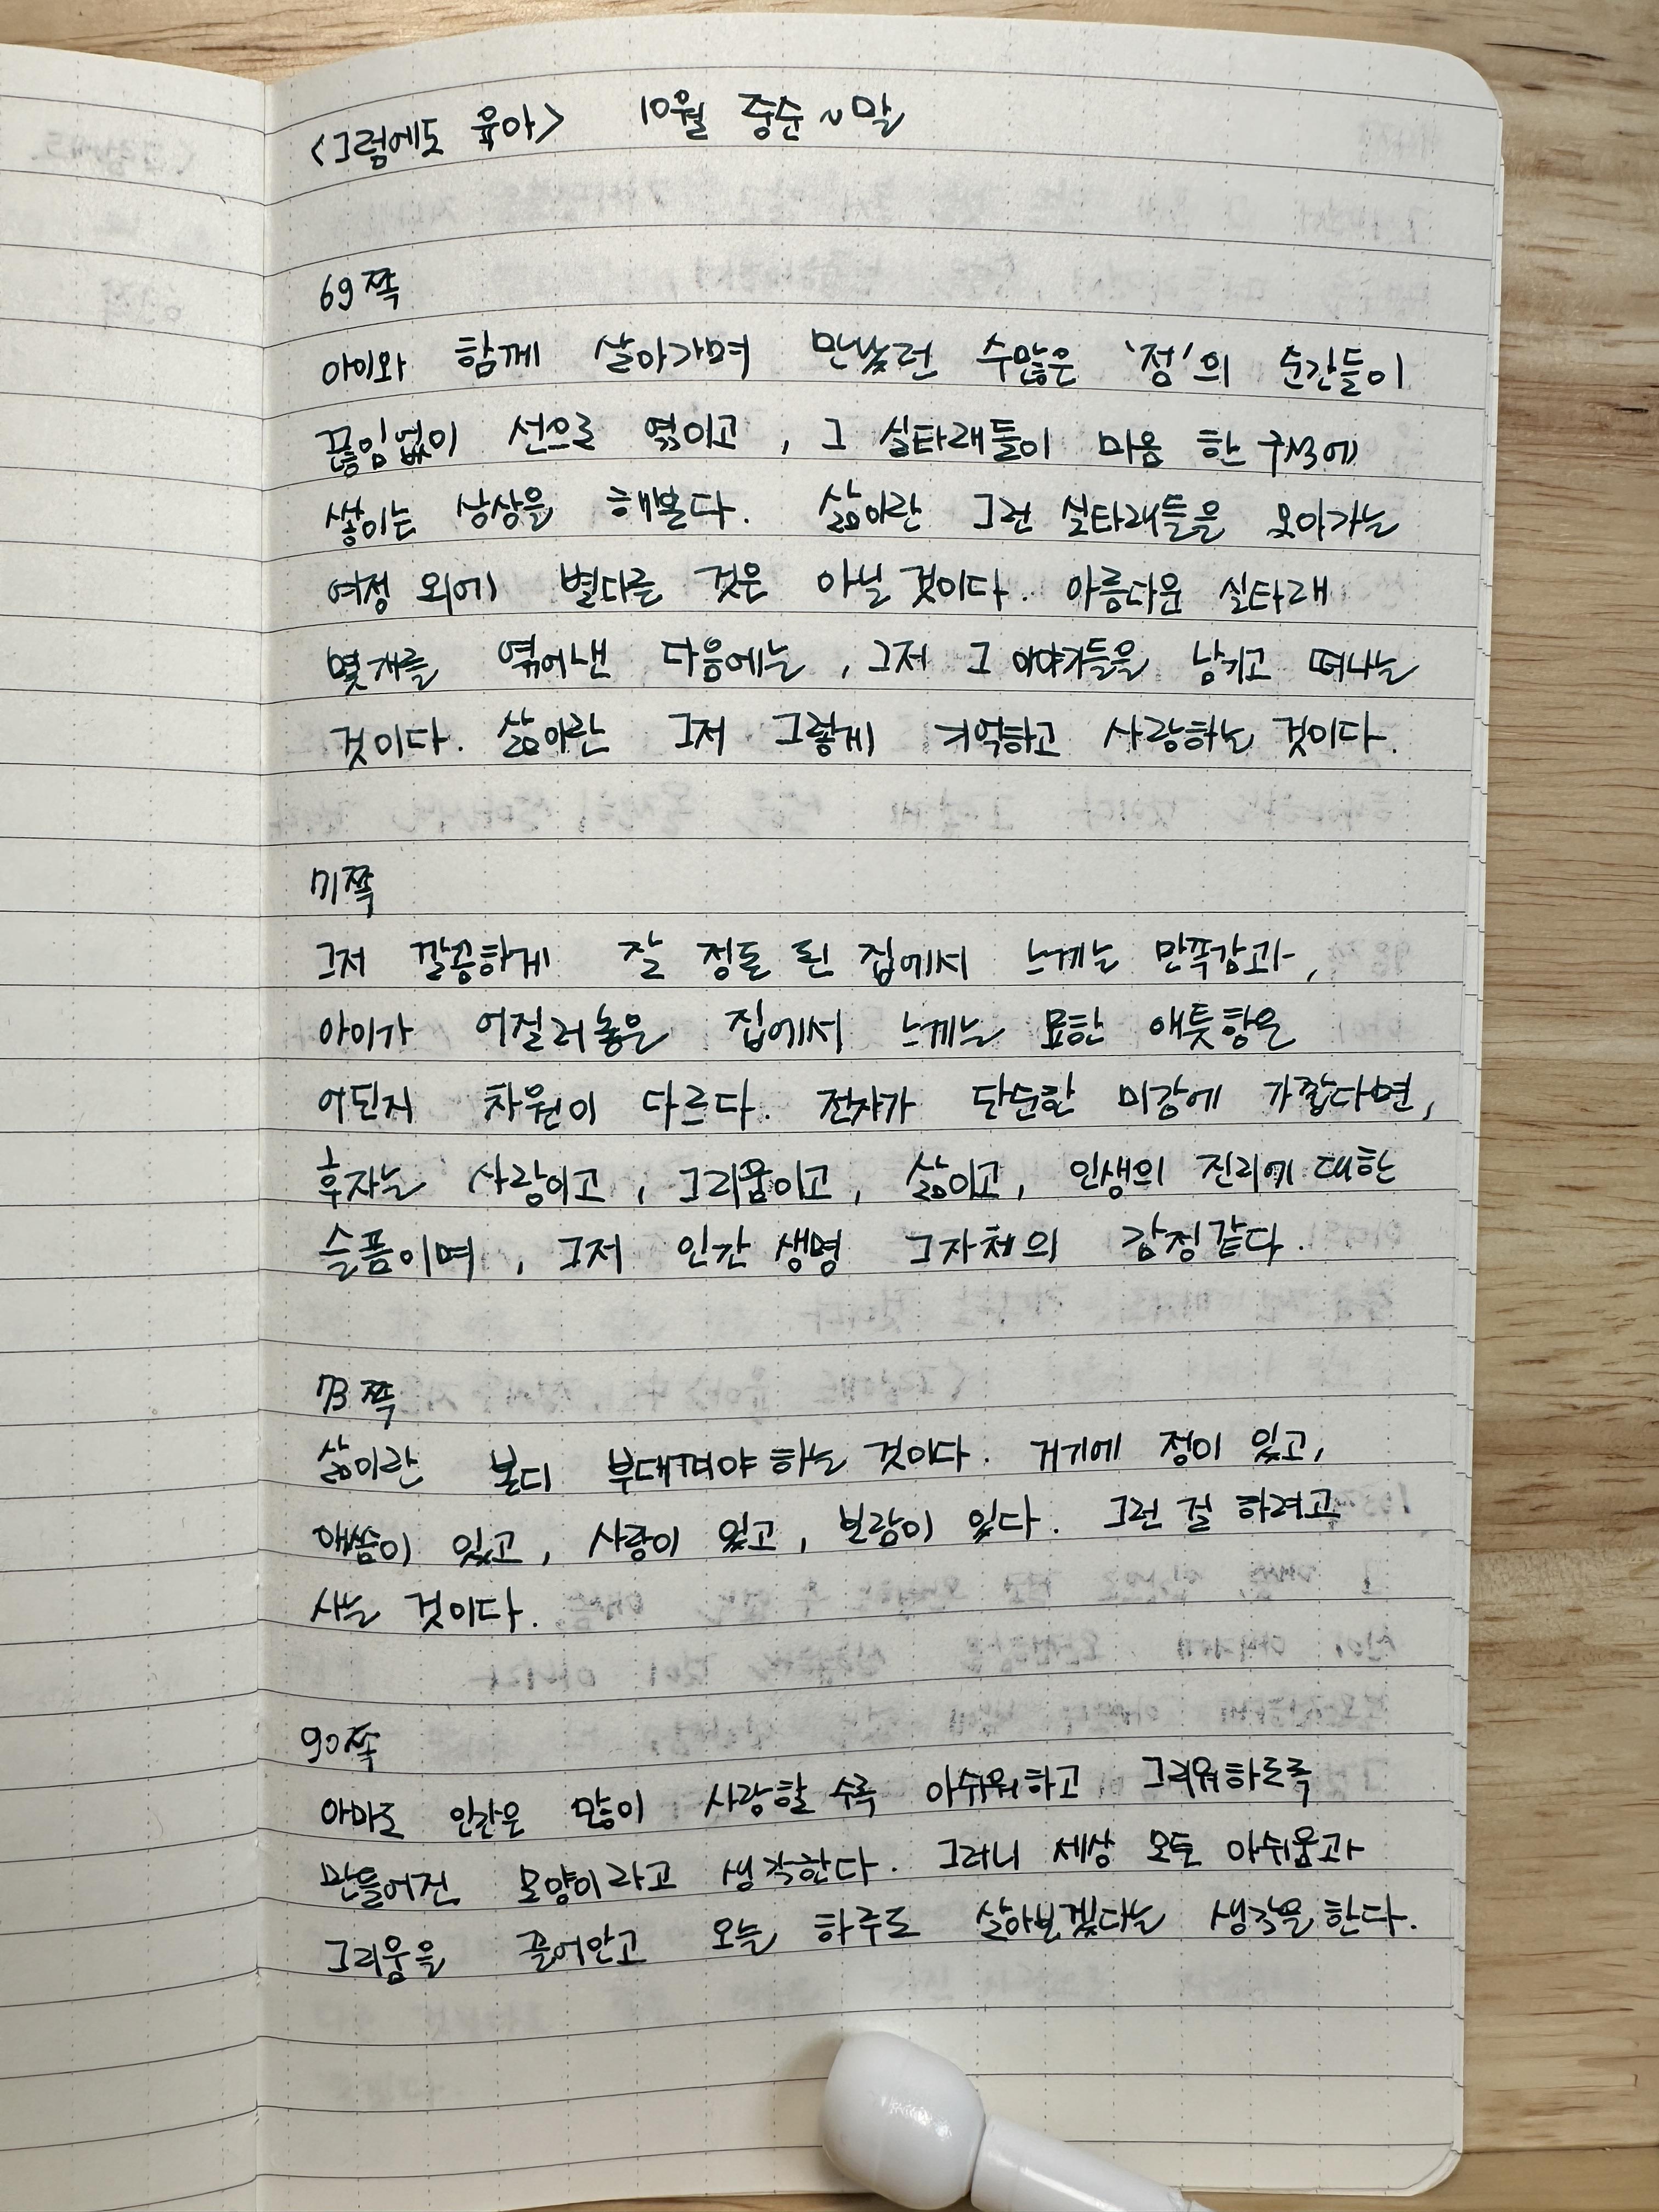 <그럼에도 육아> 10월 중순~말
69쪽
아이와 함께 살아가며 만났던 수많은 '정'의 순간들이
끊임없이 선으로 엮이고, 그 실타래들이 마음 한 구석에
쌓이는 상상을 해본다. 삶이란 그런 실타래들을 모아가는
여정 외에 별다른 것은 아닐 것이다. 아름다운 실타래
몇개를 엮어낸 다음에는, 그저 그 이야기들을 남기고 떠나는
것이다. 삶이란 그저 그렇게 기억하고 사랑하는 것이다.
71쪽
그저 깔끔하게 잘 정돈 된 집에서 느끼는 만족감과,
아이가 어질러놓은 집에서 느끼는 묘한 애틋함은
어딘지 차원이 다르다. 전자가 단순한 미감에 가깝다면,
후자는 사랑이고, 그리움이고, 삶이고, 인생의 진리에 대한
슬픔이며, 그저 인간 생명 그자체의 감정같다.
73쪽
삶이란 본디 부대껴야 하는 것이다. 거기에 정이 있고,
애씀이 있고, 사랑이 있고, 보람이 있다. 그런 걸 하려고
사는 것이다.
90쪽
아마도 인간은 많이 사랑할 수록 아쉬워하고 그리워하도록
만들어진 모양이라고 생각한다. 그러니 세상 모든 아쉬움과
그리움을 끌어안고 오늘 하루도 살아보겠다는 생각을 한다.